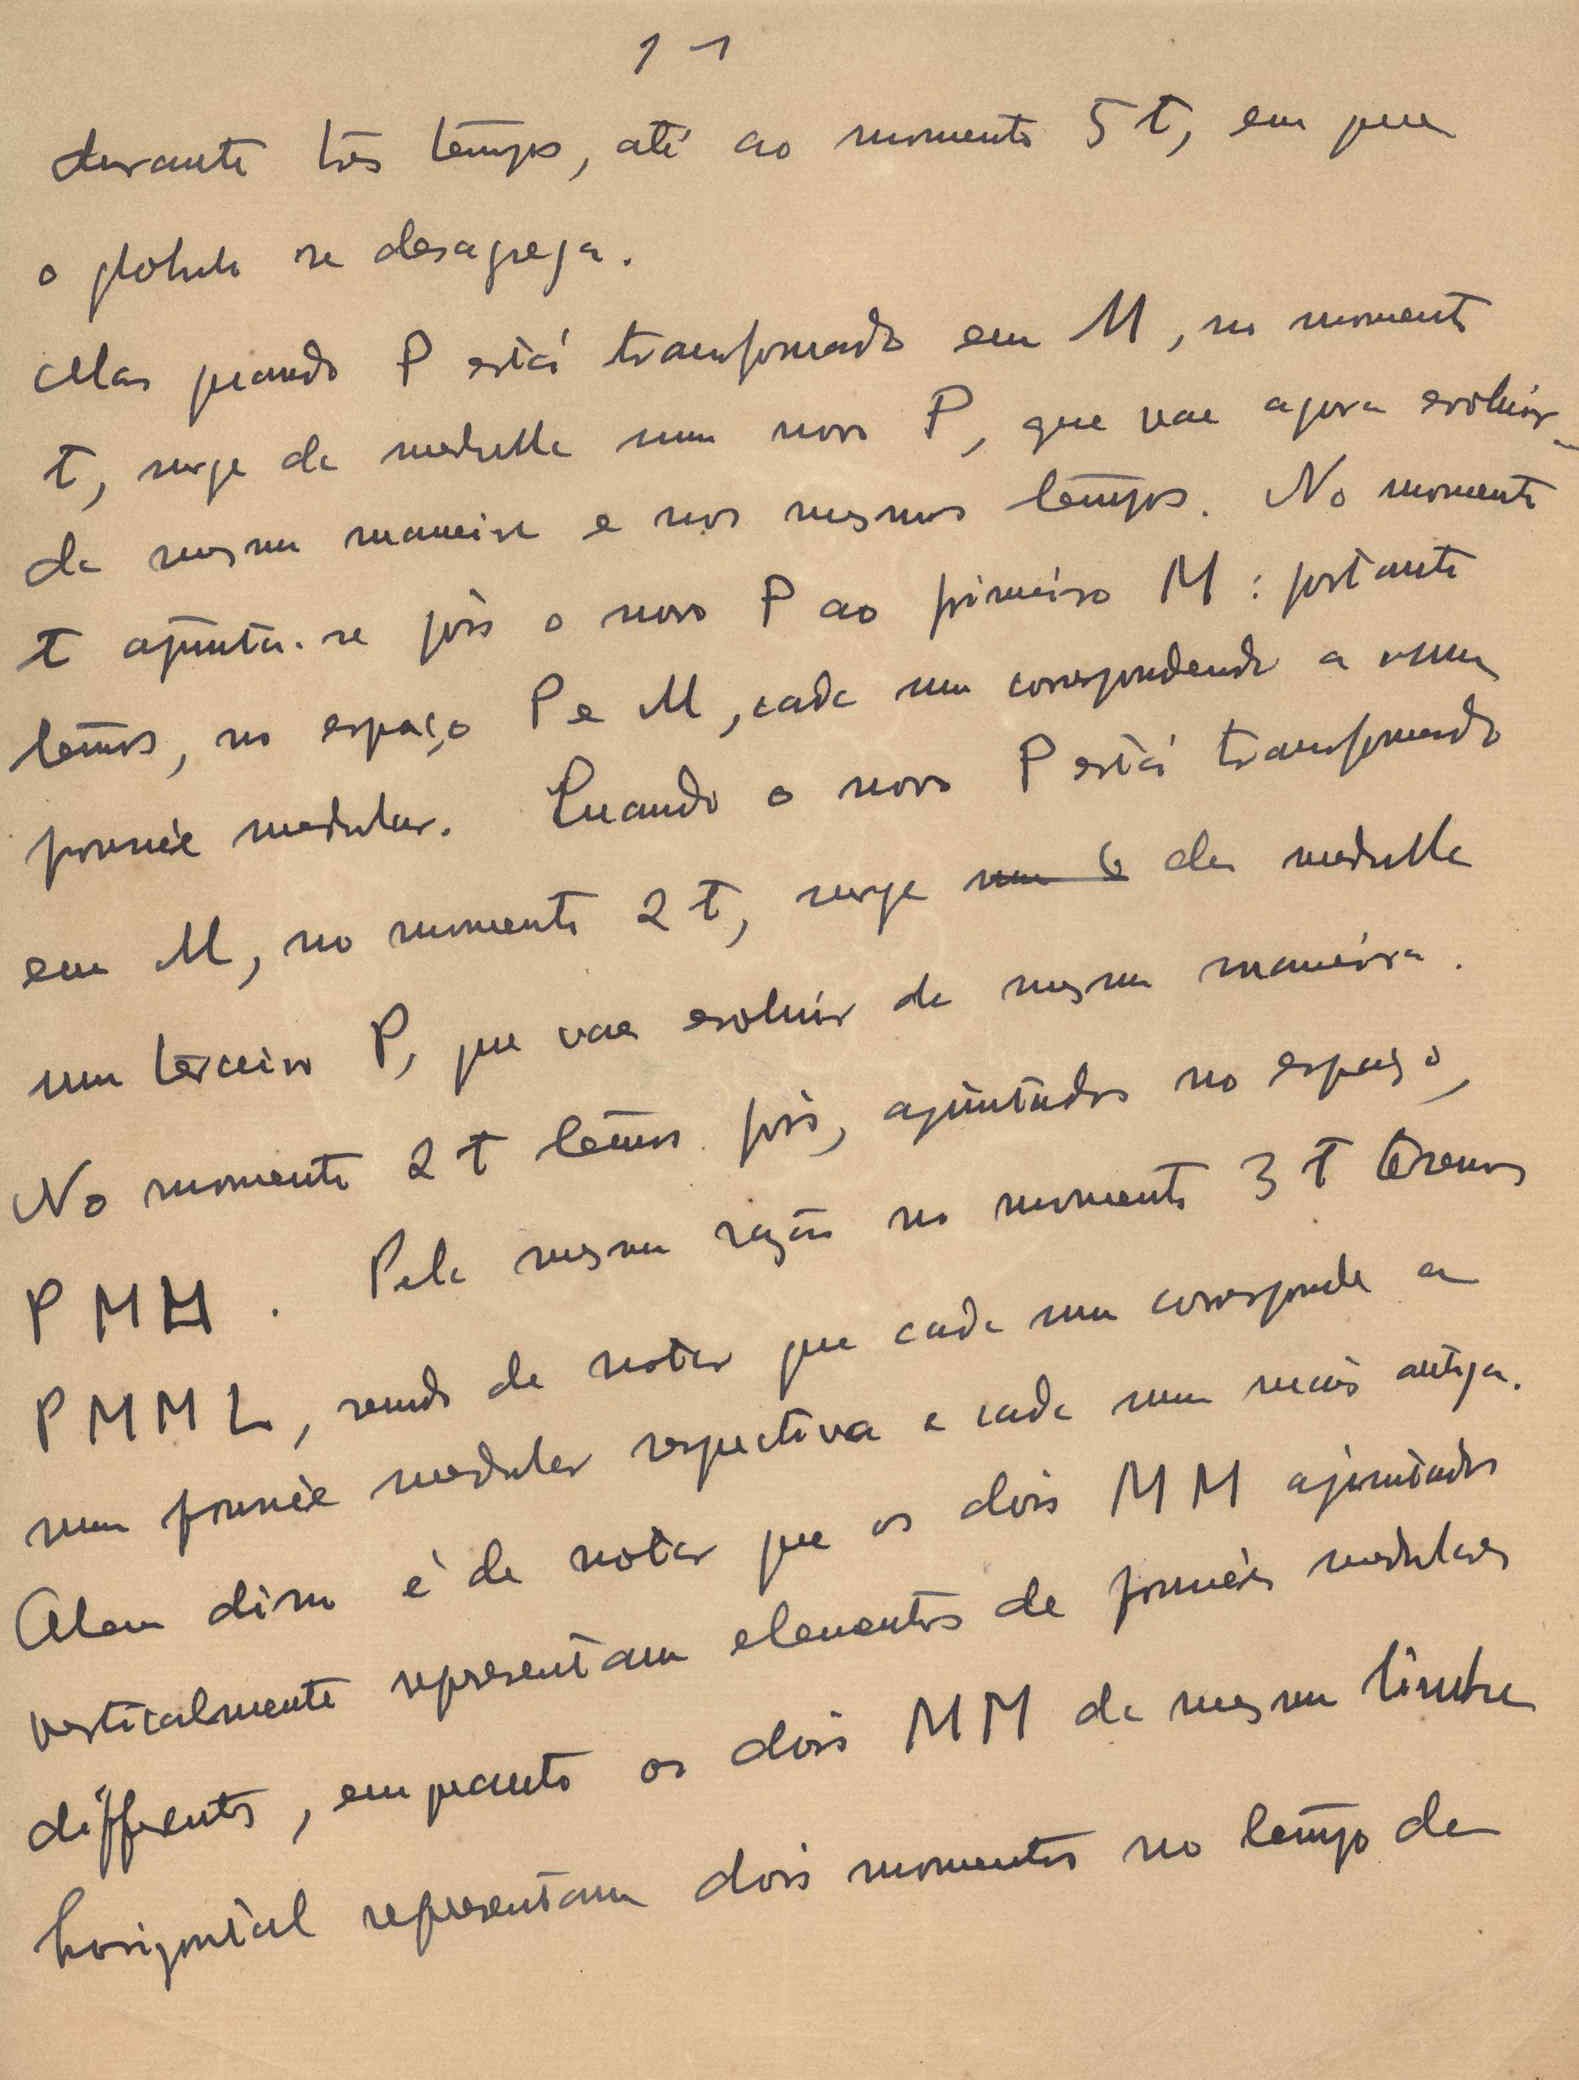 11
durante três tempos, até ao momento 5 t, em que
o globulo se desagrega.
Mas quando P está transformado em M, no momento
t, surge da medulla um novo P, que vae agora evoluir
da mesma maneira e nos mesmos tempos. No momento
t ajunta-se pois o novo P ao primeiro M : portanto
temos, no espaço P e M, cada um correspondendo a uma
fournée medular. Quando o novo P está transformado
em M, no momento 2 t, surge da medulla
um terceiro P, que vae evoluir da mesma maneira.
No momento 2 t temos pois, ajuntados no espaço,
P M M . Pela mesma razão no momento 3 t teremos
P M M L, sendo de notar que cada um corresponde a
uma fournée medular respectiva e cada um mais antiga.
Alem disso é de notar que os dois M M ajuntados
verticalmente representam elementos de fournées medulares
differents, emquanto os dois M M da mesma linha
horizontal representam dois momentos no tempo da